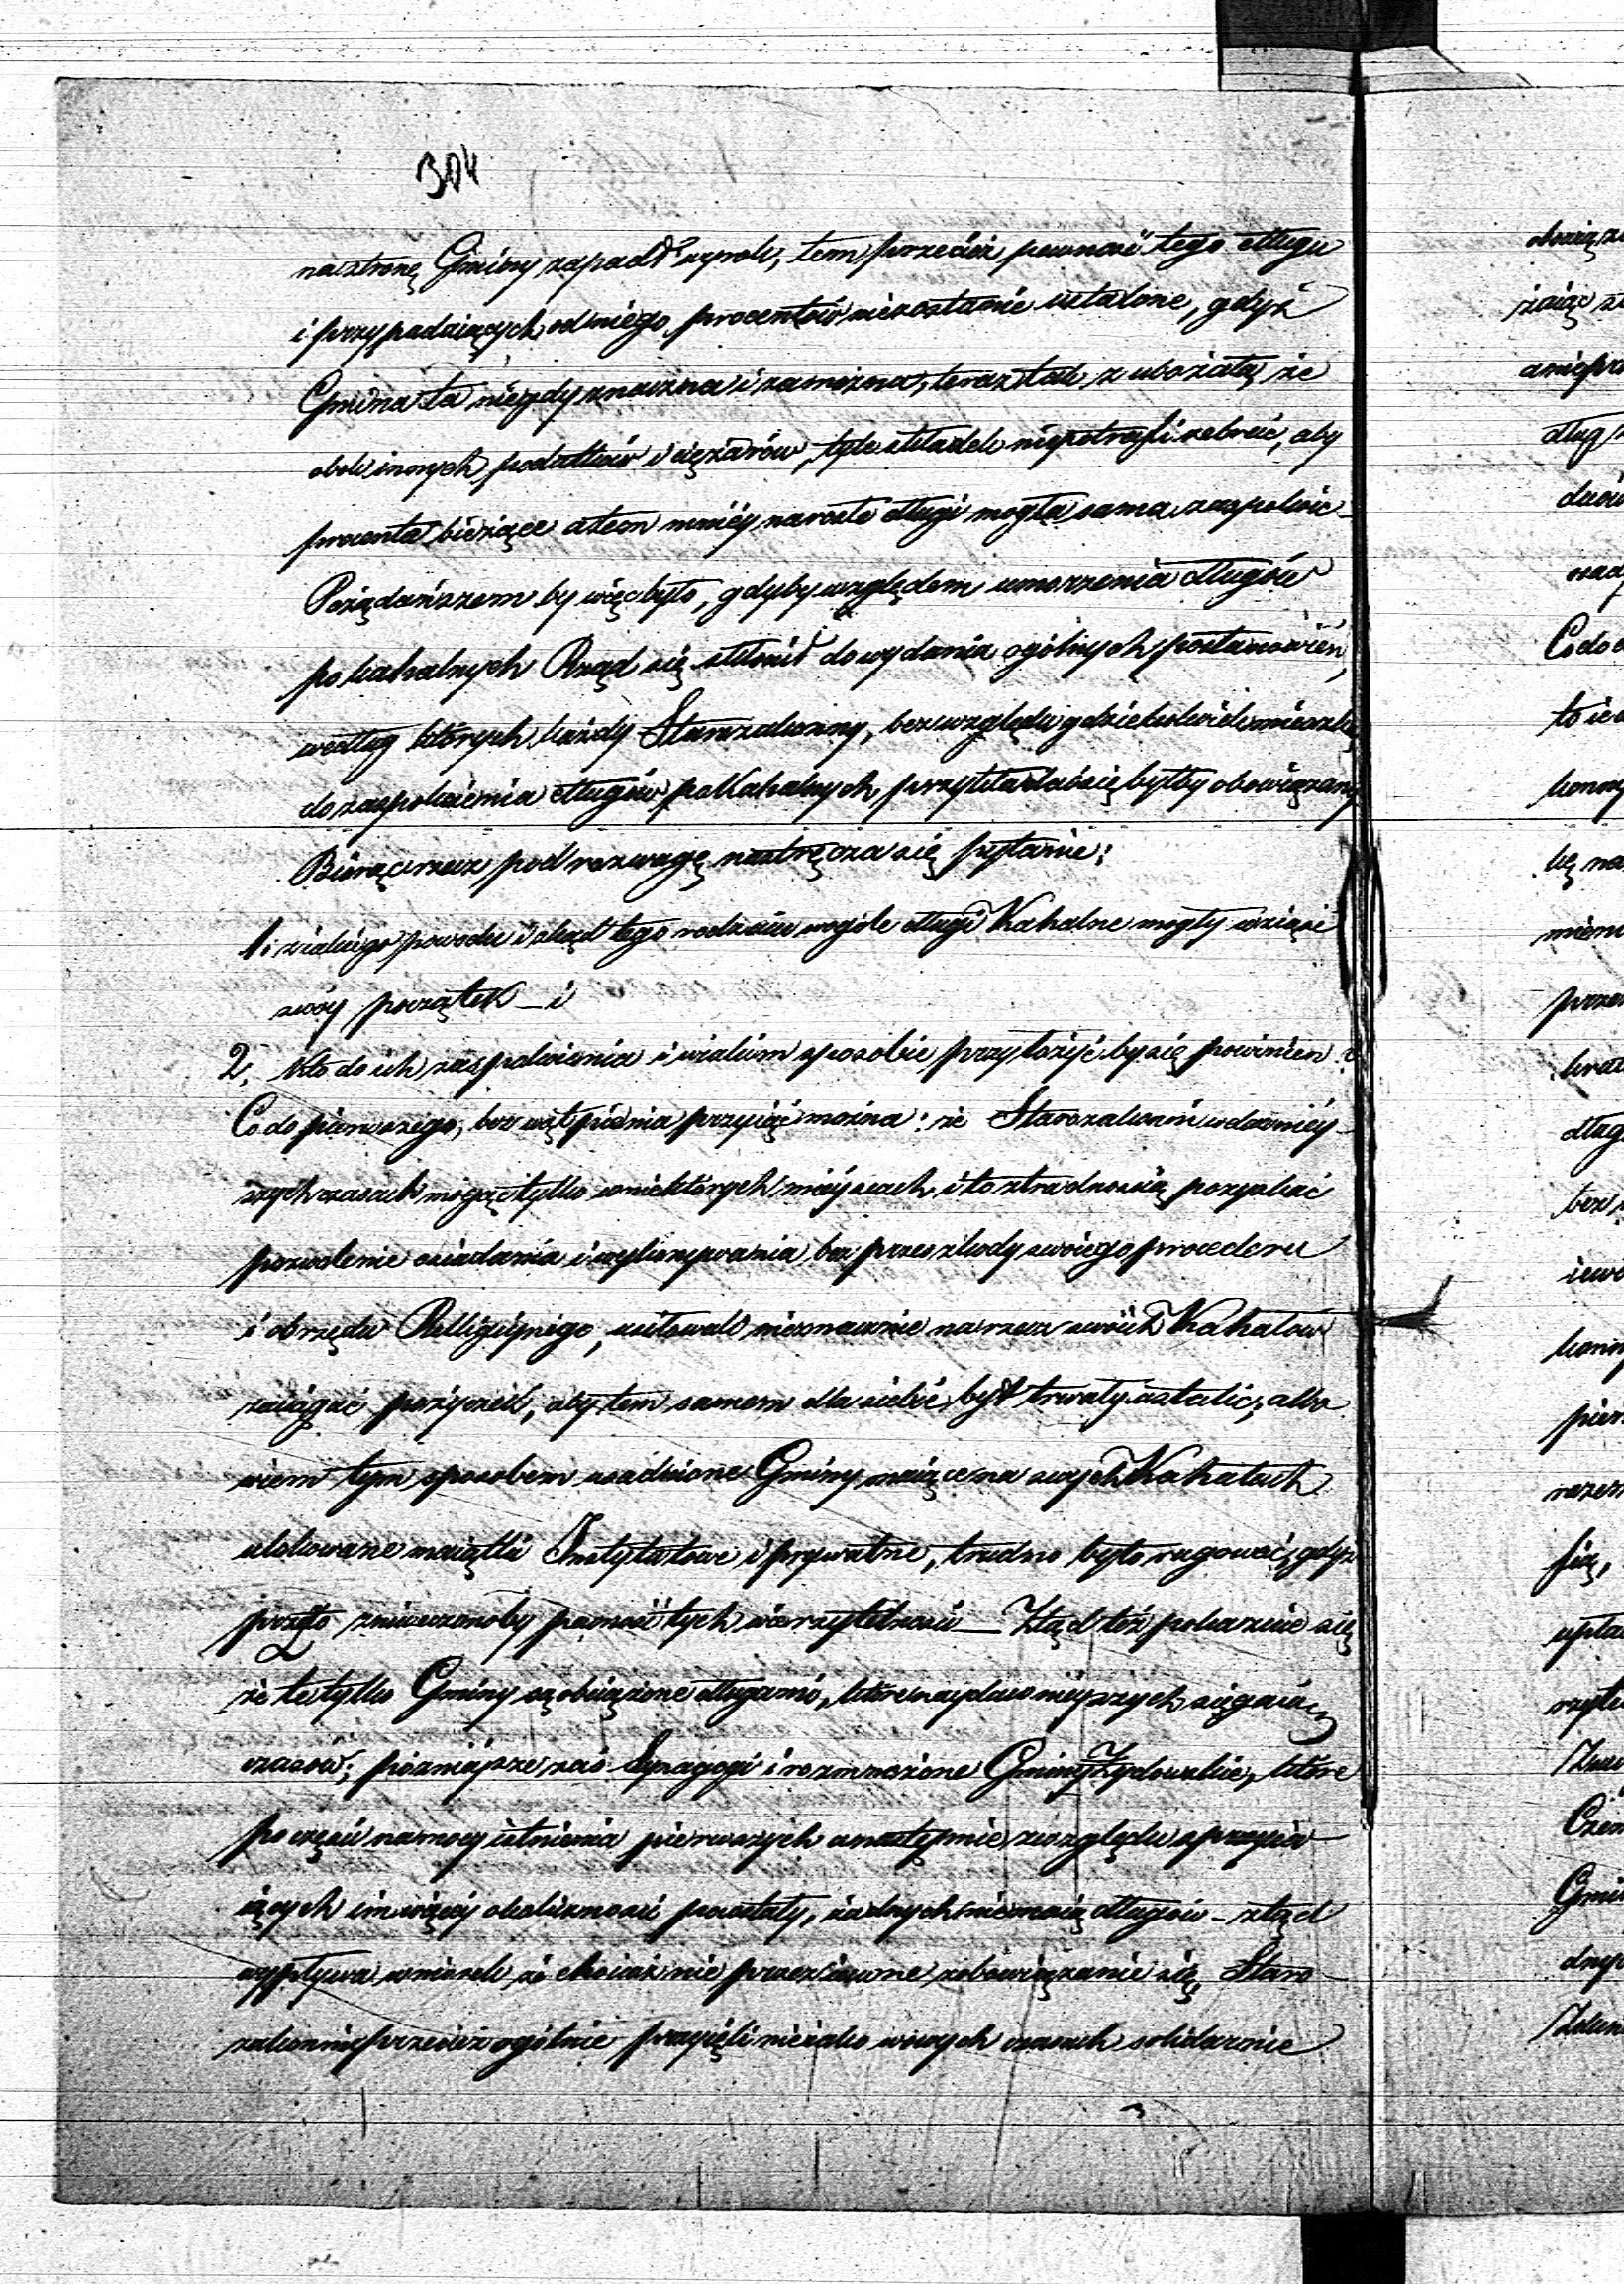 304
na stronę Gminy zapadł wyrok, tem przecież pewność tego długu
i przypadaiących od niego procentów niezostanie ustalone, gdyż
Gmina ta niegdy znaczna i zamożna, teraz tak zubożała, że
obok innych podatków i ciężarów, tyle składek niepotrafi zebrać, aby
procenta bieżące a tem mniéy narosłe długi mogła sama zaspokoić
Pożądańszem by więc było, gdyby względem umorzenia długów
pokahalnych Rząd się skłonił do wydania ogólnych postanowień,
według których każdy Starozakonny, bez względu gdziekolwiek mieszka
do zaspokoienia długów poKahalnych przykładać się byłby obowiązany
Biorąc rzecz pod rozwagę nastręcza się pytanie:
1. z iakiego powodu i skąd tego rodzaiu wogóle długi Kahalne mogły wziąść
swóy początek – i
2. Kto do ich zaspokoienia i w iakim sposobie przyłożyć by się powinien?
Co do pierwszego, bez wątpienia przyiąć można: że Starozakonni w dawniéy
szych czasach mogąc tylko w niektórych mieyscach i to z trudnością pozyskać
pozwolenie osiadania i wykonywania bez przeszkody swoiego procederu
i obrzędu Relligiynego, usiłowali nieznacznie na rzecz swoich Kahałów
zaciągać pożyczek, aby tem samem dla siebie byt trwały ustalić, albo
wiem tym sposobem osiedlone Gminy maiące na swych Kahałach
ulokowane maiątki Instytutowe i prywatne, trudno było rugować, gdyż
przez to zniweczonoby pewność tych wierzytelności – Ztąd też pokazuie się
że te tylko Gminy są obciążone długami, które naydawnieyszych sięgaią
czasów; późnieysze zaś Synagogi i rozmnożone Gminy Żydowskie, które
po części na mocy istnienia pierwszych a następnie ze względu sprzyia
iących im więcéy okoliczności powstały, żadnych nie maią długów – ztąd
wypływa wniosek, że chociaż nie przez iawne zobowiązanie się, Staro
zakonni przecież ogólnie przyięli nieiako w owych czasach solidarnie